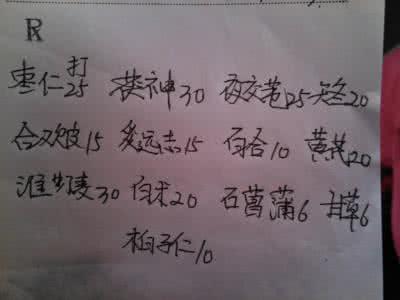 R
枣仁打25 茯神30 夜交藤25 20
合欢皮15 炙远志15 百合10 黄芪20
淮小麦30 白术20 石菖蒲6 甘草6
柏子仁10